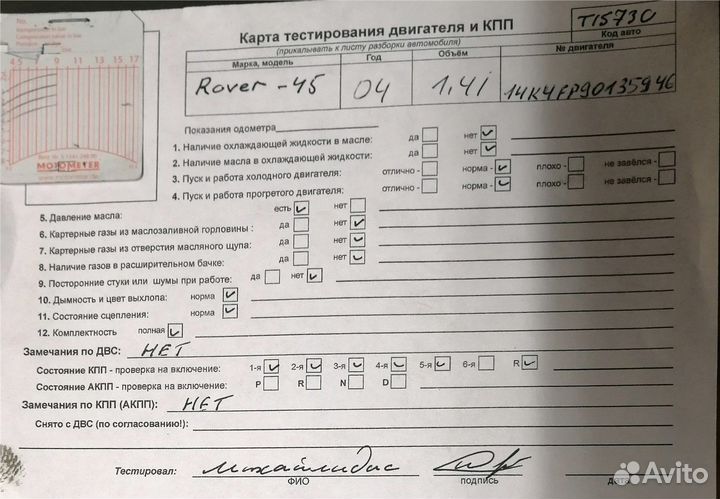 Карта тестирования двигателя и КПП
(прикалывать к листу разборки автомобиля)
T1573C
Код авто
Марка, модель Год Объём № двигателя
Rover-45 04 1,4i 14K4FP90135946
4 5 7 9 11 13 15 17
MOTOMETER
Показания одометра
1. Наличие охлаждающей жидкости в масле: да нет
2. Наличие масла в охлаждающей жидкости: да нет
3. Пуск и работа холодного двигателя: отлично - норма - плохо - не завёлся -
4. Пуск и работа прогретого двигателя: отлично - норма - плохо - не завёлся -
5. Давление масла: есть нет
6. Картерные газы из маслозаливной горловины : да нет
7. Картерные газы из отверстия масляного щупа: да нет
8. Наличие газов в расширительном бачке: да нет
9. Посторонние стуки или шумы при работе: да нет
10. Дымность и цвет выхлопа: норма
11. Состояние сцепления: норма
12. Комплектность полная
Замечания по ДВС: НЕТ
Состояние КПП - проверка на включение: 1-я 2-я 3-я 4-я 5-я 6-я R
Состояние АКПП - проверка на включение: P R N D
Замечания по КПП (АКПП): НЕТ
Снято с ДВС (по согласованию!):
Тестировал: Михайлидис
ФИО подпись дата
Avito